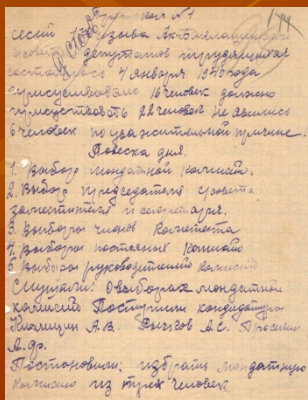 Протокол №1
сессии созыва Ак-Баклашинского
совета депутатов трудящихся
состоялось 4 января 1948 года
Присутствовало 16 человек должно
присутствовать 22 человек не явились
6 человек по уважительной причине.
Повеска дня.
1. Выбор мондатной комисии.
2. Выбор председателя совета
заместителя и секретаря.
3. Выборы членов комитета
4. Выборы постояных комисий
5 Выборы руководителей комисий
Слушали: О выборах мондатной
комисии Поступили кондидатуры
А.В. А.С.
А.Ф.
Постановили: избрать мондатную
комисию из трех человек